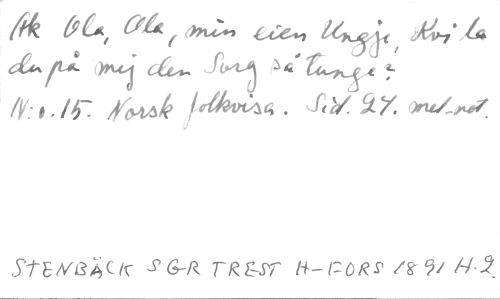 Ak Ola, Ola, min eien Ungje, Kvi la
du på mig den Sorg så tunge?
N:o. 15. Norsk folkvisa. Sid. 24. mel-not.
STENBÄCK SGR TREST H-FORS 1891 H.2.